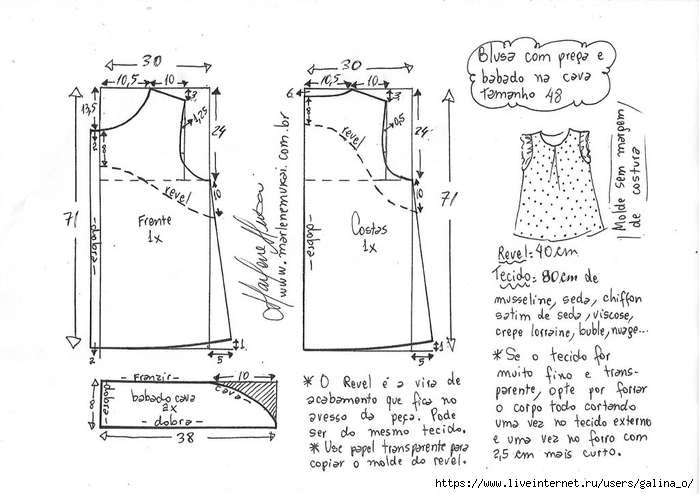 Blusa com prega e
babado na cava
Tamanho 48
30
10,5
10
3
13,5
1,25
24
2
8
revel
10
71
Frente
1x
dobra
1
2
5
Marlene Mukai
www.marlenemukai.com.br
30
10,5
10
6
3
0,5
24
8
revel
10
71
Costas
1x
dobra
1
5
Molde sem margem
de costura
Revel=40cm
Tecido=80cm de
musseline, seda, chiffon
satim de seda, viscose,
crepe lorraine, buble, nuage...
* Se o tecido for
muito fino e trans-
parente, opte por forrar
o corpo todo cortando
uma vez no tecido externo
e uma vez no forro com
2,5 cm mais curto.
Franzir
10
cava
dobra
babado cava
2x
8
dobra
38
* O Revel é a vira de
acabamento que fica no
avesso da peça. Pode
ser do mesmo tecido.
* Use papel transparente para
copiar o molde do revel.
https://www.liveinternet.ru/users/galina_o/